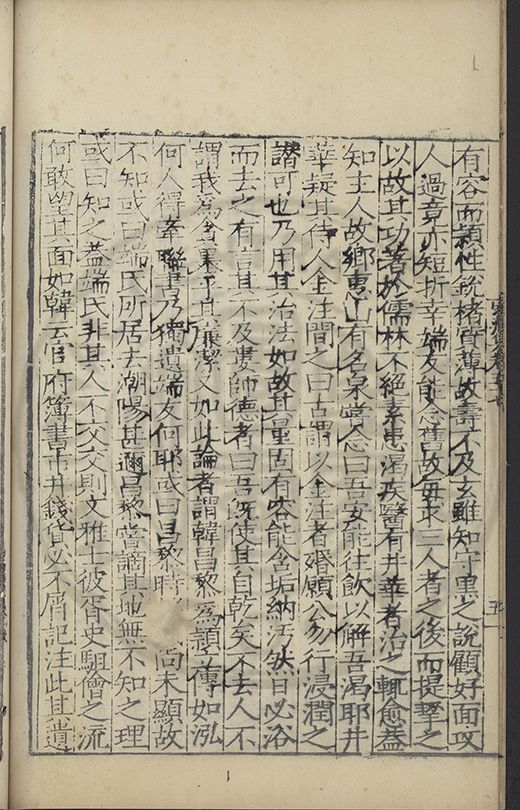 有容而潁性銳楮質薄故壽不及玄雖知守黑之說顧好面攻
人過竟亦短折幸端友能念舊故每求三人者之後而提挈之
以故其功著於儒林不絕素患渴疾醫有井華者治之輒愈蓋
知主人故鄉惠山有名泉嘗念曰吾安能往飲以解吾渴耶井
華疑其侍人金注間之曰古謂以金注者婚願公勿行浸潤之
譖可也乃用其治法如故其量固有容能含垢納污然日必浴
而去之有豈其不及婁師德者曰吾寧使其自乾矣不去人不
謂我為含裹子其廉潔又如此論者謂韓昌黎為潁立傳如泓
何人得牽聯書乃獨遺端友何耶或曰昌黎時 尚未顯故
不知或曰端氏所居去潮陽甚邇昌黎嘗謫其地無不知之理
或曰知之蓋端氏非其人不交交則文雅士彼胥史駔儈之流
何敢望其面如韓云官府簿書市井錢貨必不屑記注此其遺